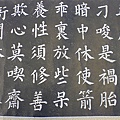 刁唆是禍胎
暗中休使箭
乖裏放些呆
養性須修善
欺心莫喫齋